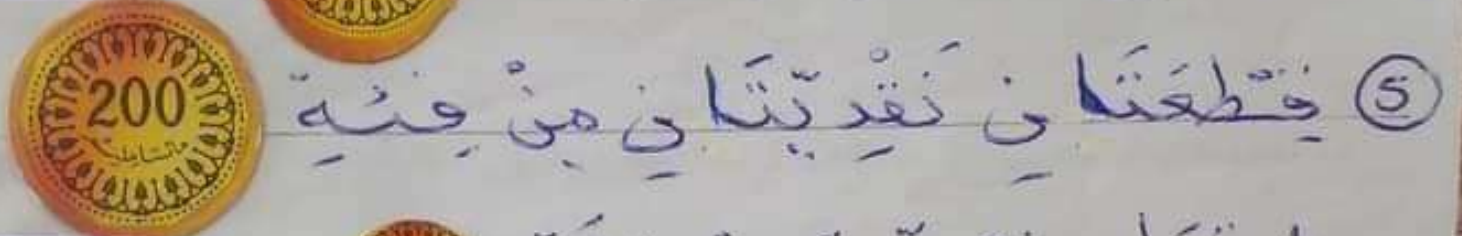 ⑤ قِطْعَتَانِ نَقْدِيَّتَانِ مِنْ فِئَةِ 200